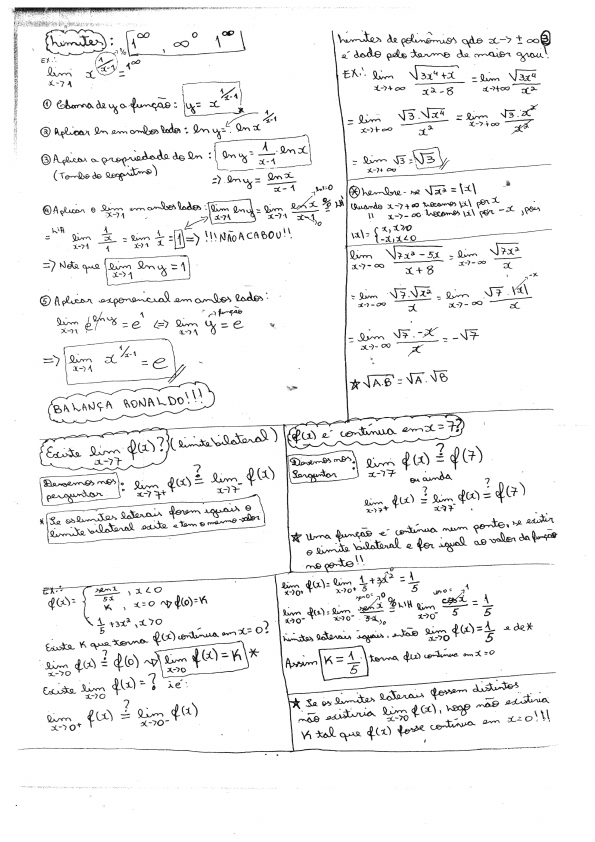 Limites: 1^∞, ∞^0, 1^∞
EX.:
lim x→1 x^(1/x-1) = 1^∞
① Chama de y a função: y = x^(1/x-1)
② Aplicar ln em ambos lados: ln y = ln x^(1/x-1)
③ Aplicar a propriedade do ln: ln y = 1/(x-1) · ln x
(Tombo do logaritmo)
=> ln y = ln x/(x-1)
④ Aplicar o lim x→1 em ambos lados: lim x→1 ln y = lim x→1 ln x/(x-1) 0/0 L'H
L'H = lim x→1 (1/x)/1 = lim x→1 1/x = 1 => !!! NÃO ACABOU!!
=> Note que lim x→1 ln y = 1
⑤ Aplicar exponencial em ambos lados:
lim x→1 e^(ln y) = e^1 <=> lim x→1 y = e
função
=> lim x→1 x^(1/x-1) = e
BALANÇA RONALDO!!!
Limites de polinômios qdo x→±∞ 3
é dado pelo termo de maior grau!
EX.: lim x→+∞ √(3x⁴+x)/(x²-8) = lim x→+∞ √(3x⁴)/x²
= lim x→+∞ √3·√x⁴/x² = lim x→+∞ √3·x²/x²
= lim x→+∞ √3 = √3
* Lembre-se √x² = |x|
Quando x→+∞ trocamos |x| por x
" x→-∞ trocamos |x| por -x, pois
|x| = { x, x≥0
{ -x, x<0
lim x→-∞ √(7x²-5x)/(x+8) = lim x→-∞ √(7x²)/x
= lim x→-∞ √7·√x²/x = lim x→-∞ √7·|x|/x -x
= lim x→-∞ √7·-x/x = -√7
★ √A·B = √A·√B
Existe lim x→7 f(x)? (limite bilateral)
Devemos nos perguntar: lim x→7+ f(x) ?= lim x→7- f(x)
* Se os limites laterais forem iguais o
limite bilateral existe e tem o mesmo valor
f(x) é contínua em x=7?
Devemos nos Perguntar: lim x→7 f(x) ?= f(7)
ou ainda
lim x→7+ f(x) ?= lim x→7- f(x) ?= f(7)
★ Uma função é contínua num ponto, se existir
o limite bilateral e for igual ao valor da função
no ponto!!
EX.:
f(x) = { sen x/5x, x<0
{ K, x=0 → f(0)=K
{ 1/5 + 3x², x>0
Existe K que torna f(x) contínua em x=0?
lim x→0 f(x) ?= f(0) → lim x→0 f(x) = K *
Existe lim x→0 f(x) = ? i.e:
lim x→0+ f(x) ?= lim x→0- f(x)
lim x→0+ f(x) = lim x→0+ 1/5 + 3x² = 1/5
lim x→0- f(x) = lim x→0- sen x/5x 0/0 L'H = lim x→0- cos x/5 = 1/5
Limites laterais iguais, então lim x→0 f(x) = 1/5 e de *
Assim K = 1/5 torna f(x) contínua em x=0
★ Se os limites laterais fossem distintos
não existiria lim x→0 f(x), logo não existiria
K tal que f(x) fosse contínua em x=0!!!